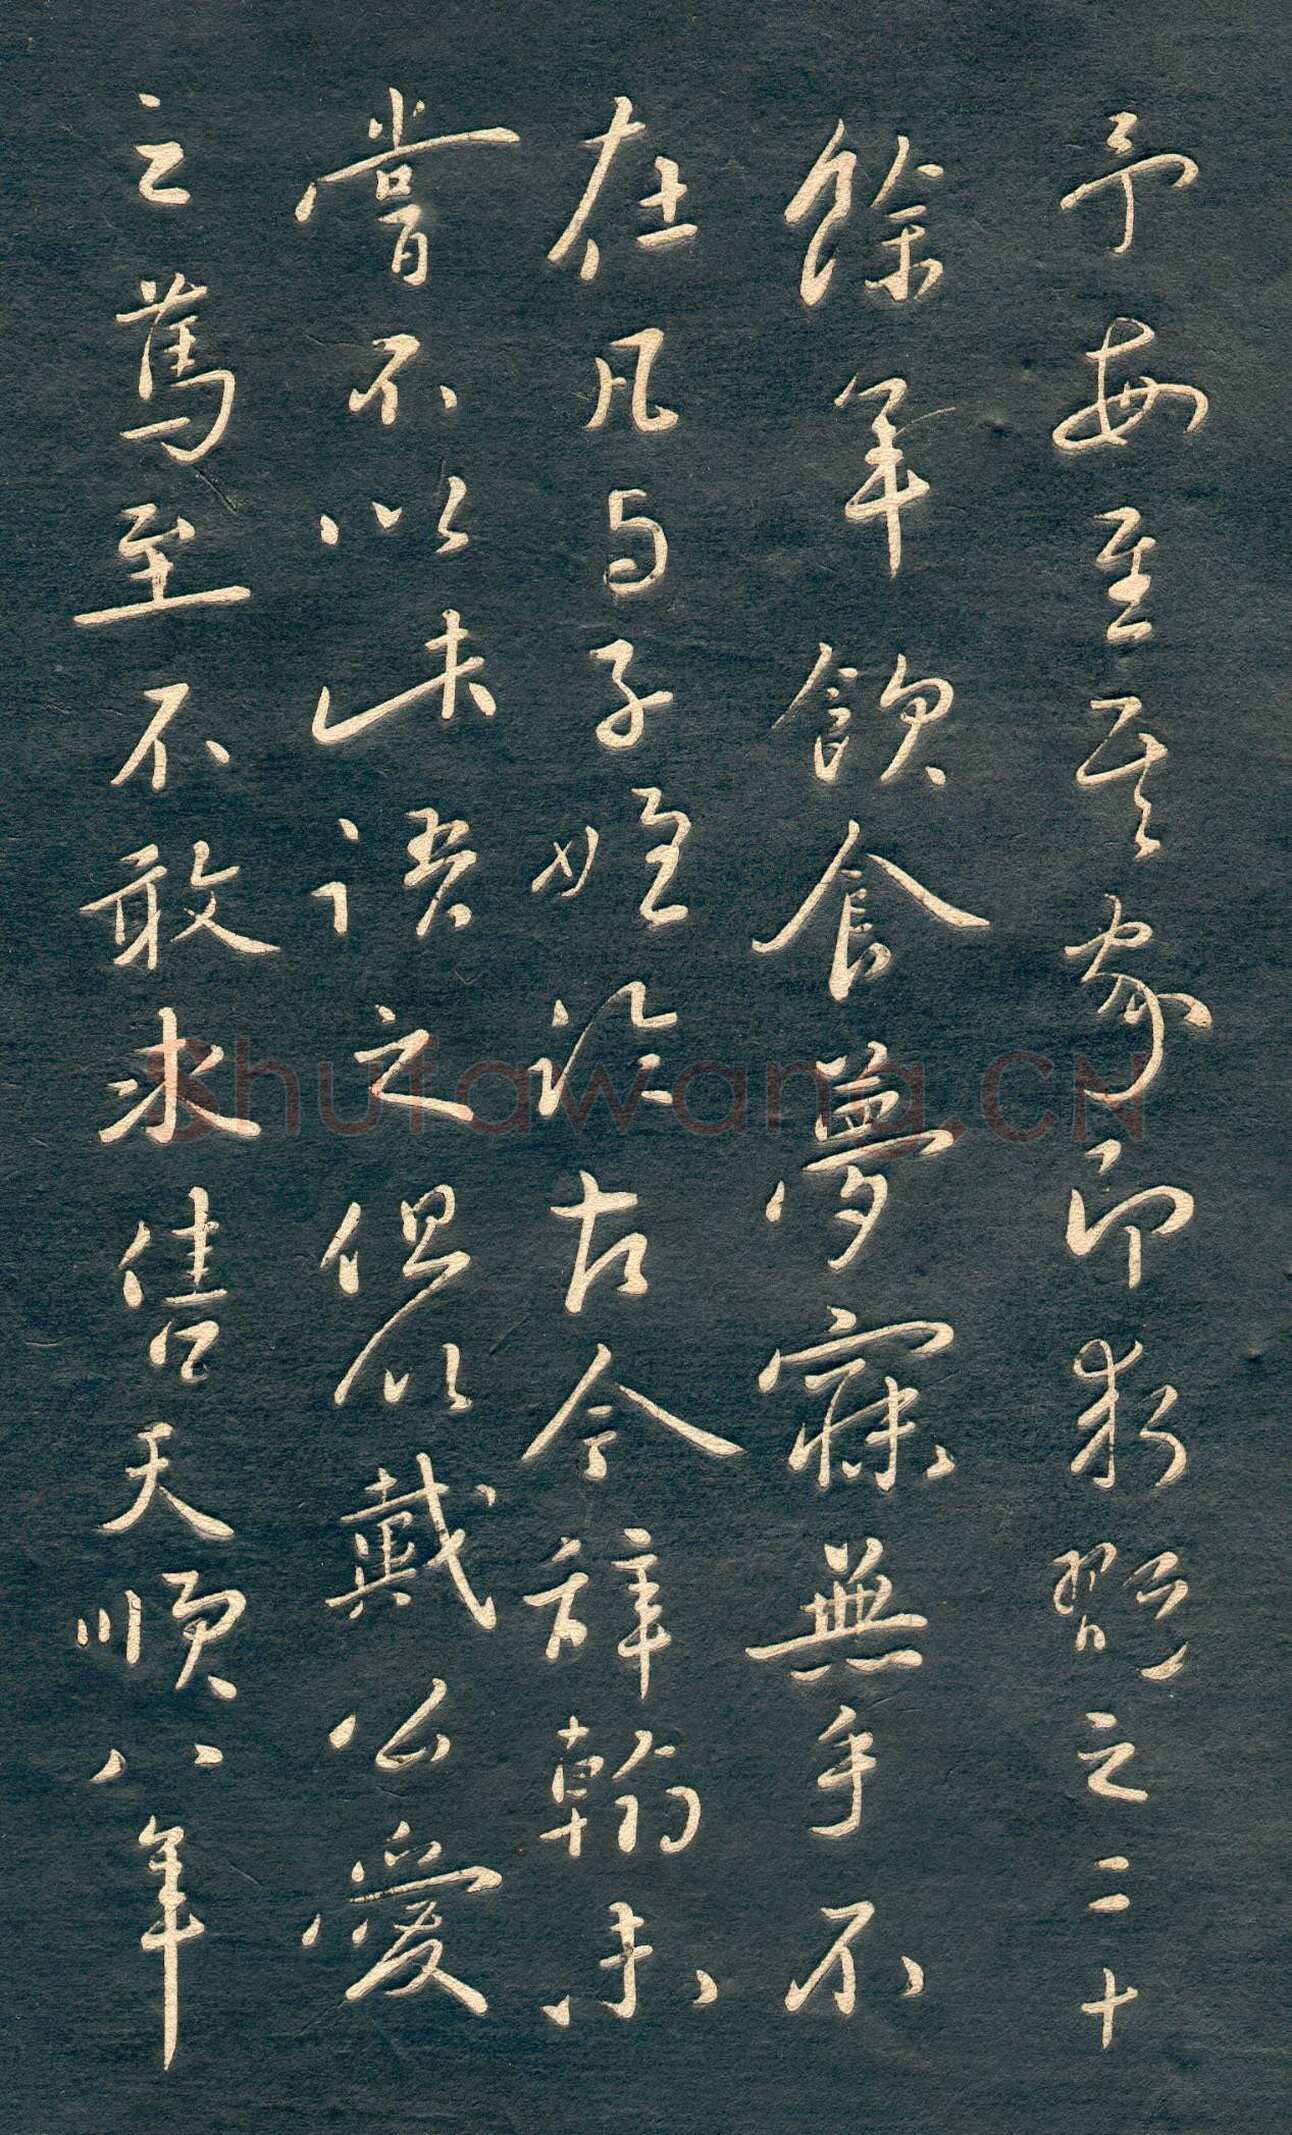 予每至其家即翫之二十
餘年飲食夢寐無乎不
在凡与子姪論古今辞翰未
嘗不以語之但以戴公愛
之篤至不敢求售天順八年
Shufawang.CN